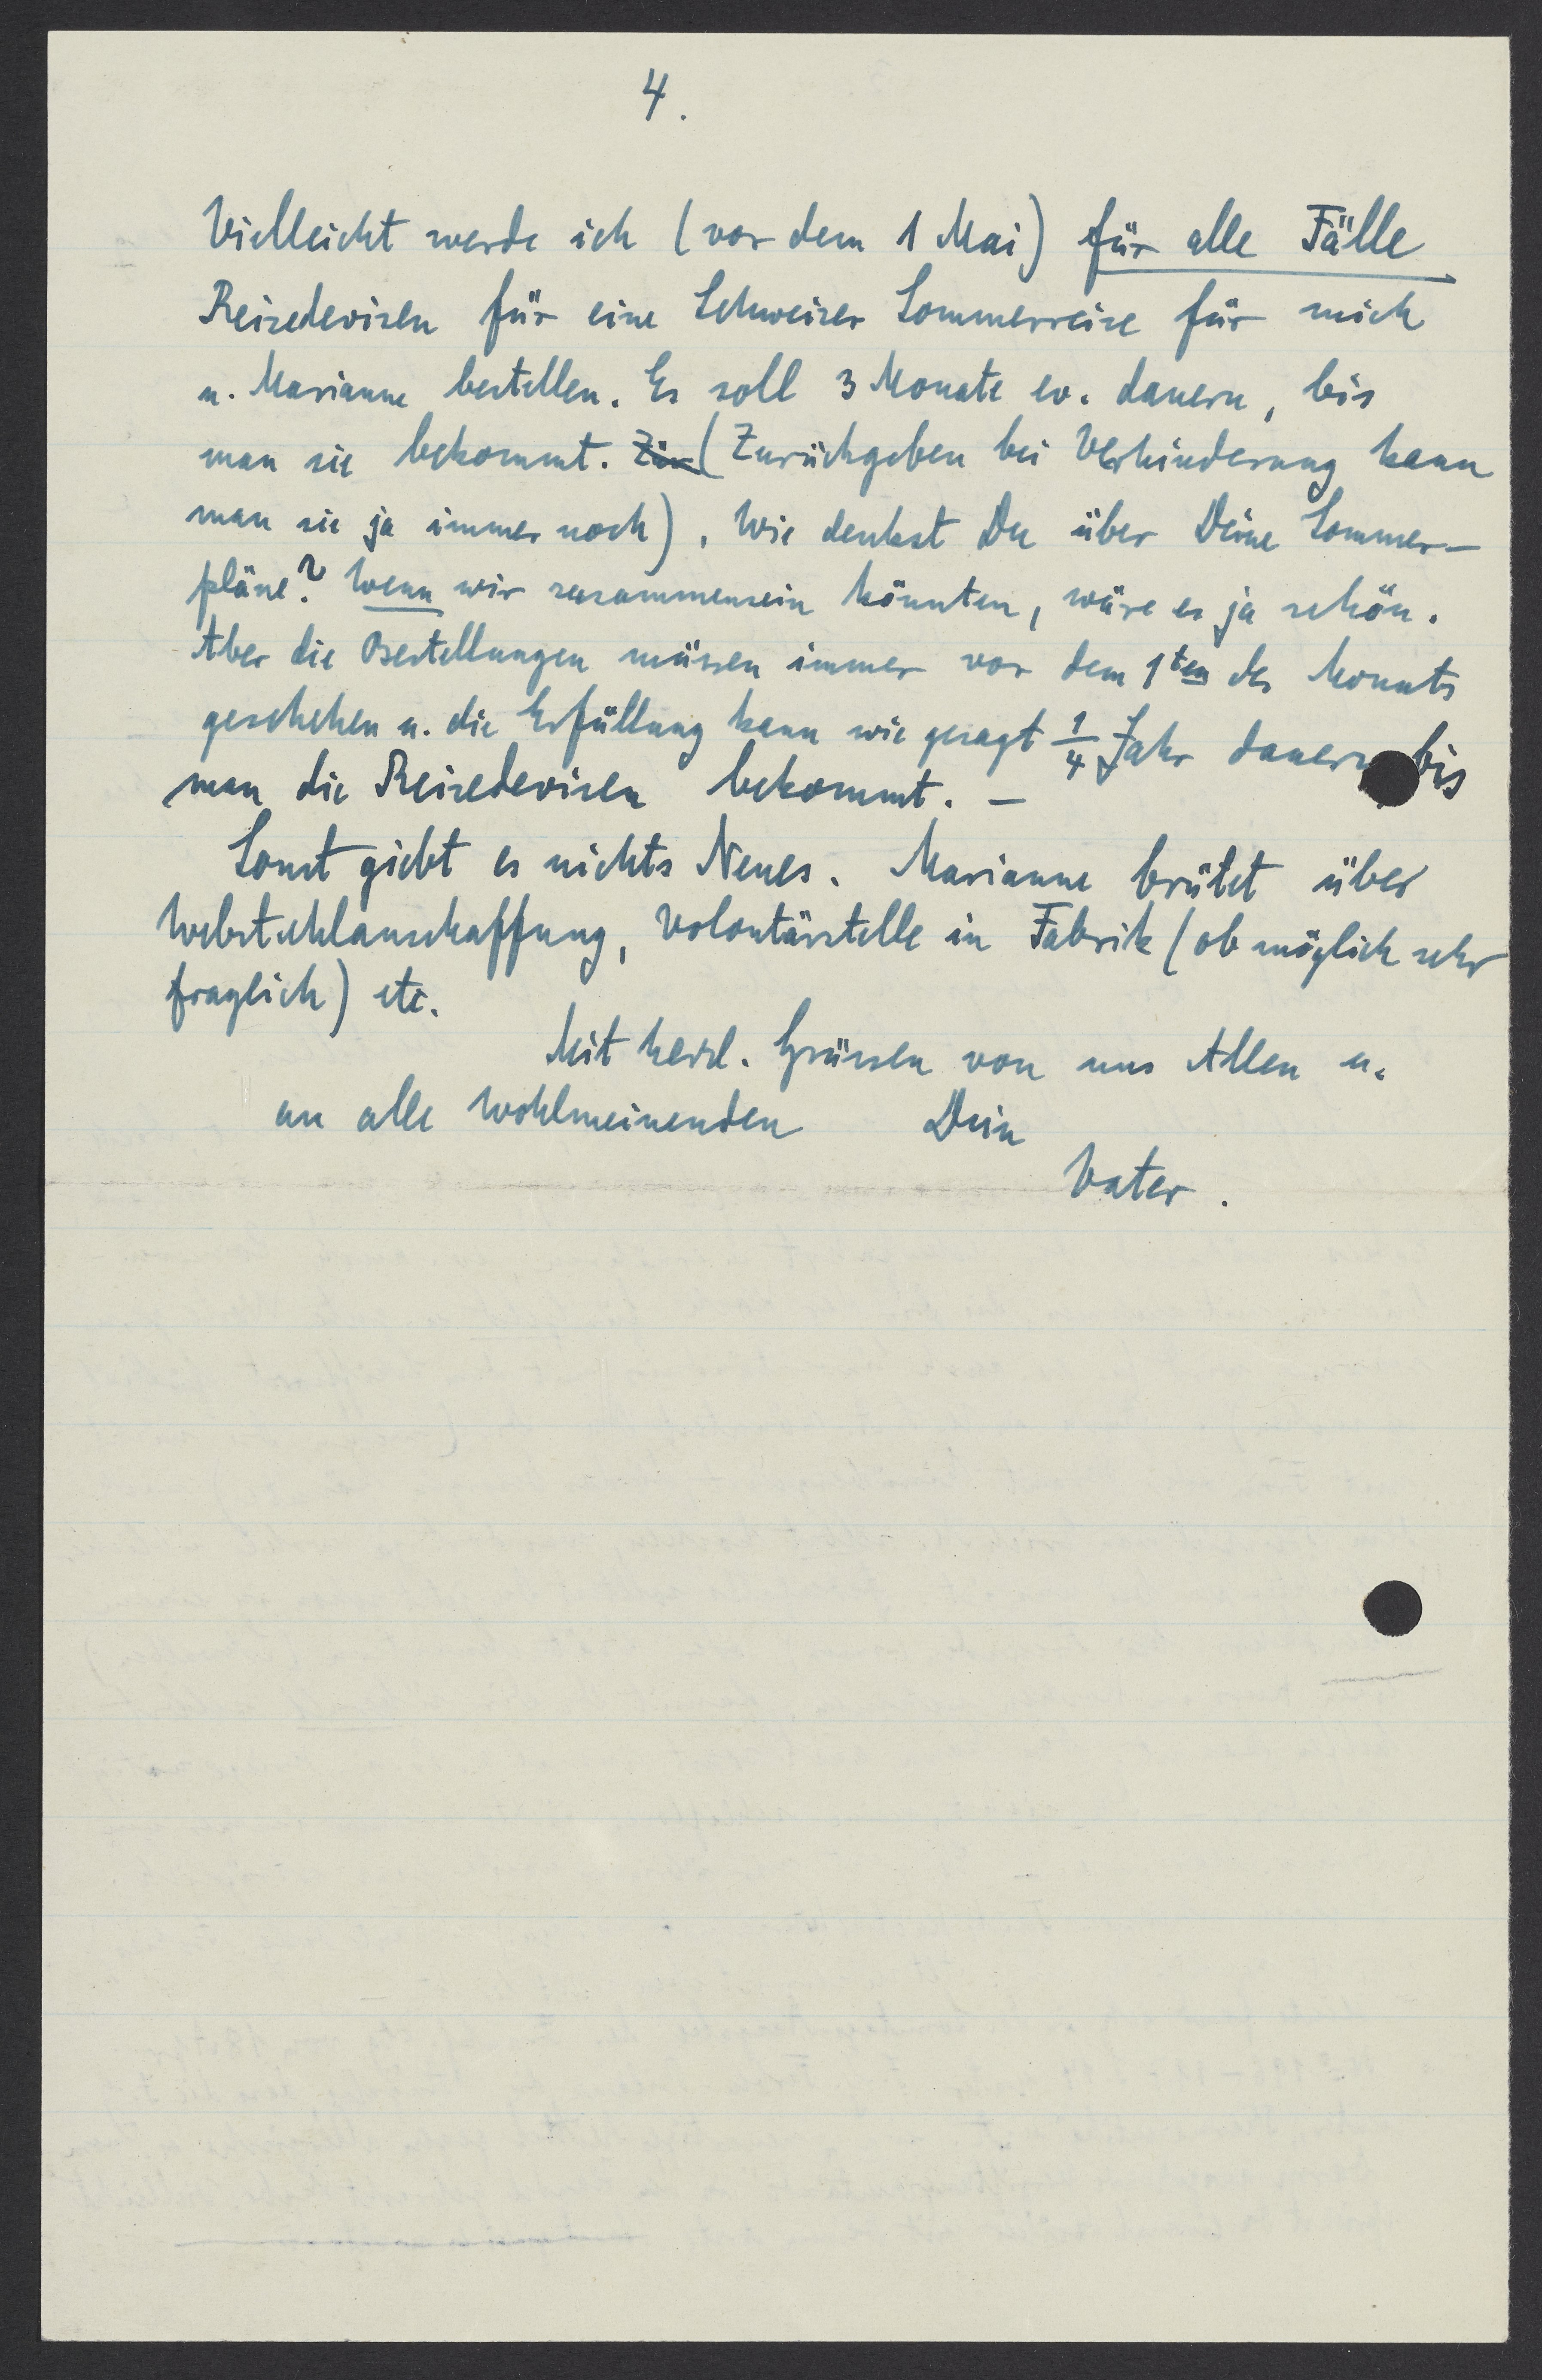 4.
Vielleicht werde ich (vor dem 1 Mai) für alle Fälle
Reisedevisen für eine Schweizer Sommerreise für mich
u. Marianne bestellen. Es soll 3 Monate ev. dauern, bis
man sie bekommt. Zür (Zurückgeben bei Verhinderung kann
man sie ja immer noch), Wie denkst Du über Deine Sommer-
pläne? Wenn wir zusammensein könnten, wäre es ja schön.
Aber die Bestellungen müssen immer vor dem 1ten des Monats
geschehen u. die Erfüllung kann wie gesagt 1/4 Jahr dauern bis
man die Reisedevisen bekommt. –
Sonst giebt es nichts Neues. Marianne brütet über
Webstuhlanschaffung, Volontärstelle in Fabrik (ob möglich sehr
fraglich) etc.
Mit herzl. Grüssen von uns Allen u.
an alle Wohlmeinenden Dein
Vater.